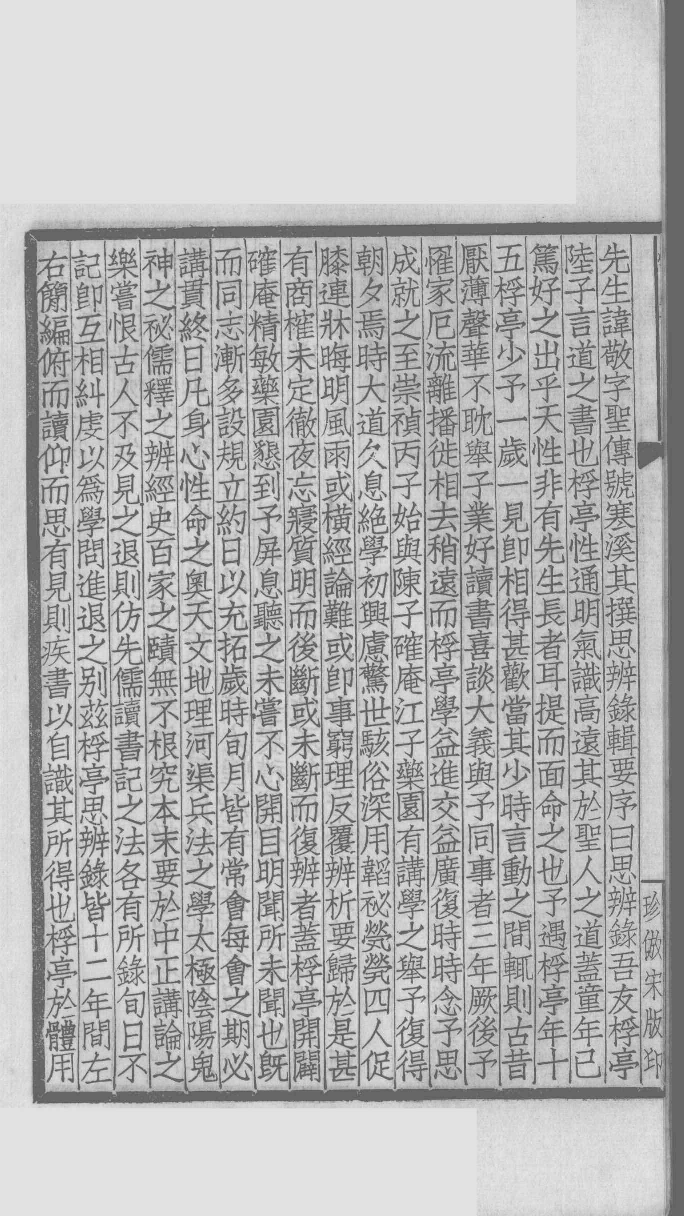 先生諱敬字聖傳號寒溪其撰思辨錄輯要序曰思辨錄吾友桴亭
陸子言道之書也桴亭性通明氣識高遠其於聖人之道蓋童年已
篤好之出乎天性非有先生長者耳提而面命之也予遇桴亭年十
五桴亭少予一歲一見卽相得甚歡當其少時言動之間輒則古昔
厭薄聲華不耽舉子業好讀書喜談大義與予同事者三年厥後予
罹家厄流離播徙相去稍遠而桴亭學益進交益廣復時時念予思
成就之至崇禎丙子始與陳子確庵江子藥園有講學之舉予復得
朝夕焉時大道久息絕學初興慮驚世駭俗深用韜祕煢煢四人促
膝連牀晦明風雨或橫經論難或卽事窮理反覆辨析要歸於是甚
有商榷未定徹夜忘寢質明而後斷或未斷而復辨者蓋桴亭開闢
確庵精敏藥園懇到予屏息聽之未嘗不心開目明聞所未聞也旣
而同志漸多設規立約日以充拓歲時旬月皆有常會每會之期必
講貫終日凡身心性命之奧天文地理河渠兵法之學太極陰陽鬼
神之祕儒釋之辨經史百家之賾無不根究本末要於中正講論之
樂嘗恨古人不及見之退則仿先儒讀書記之法各有所錄旬日不
記卽互相糾虔以爲學問進退之別茲桴亭思辨錄皆十二年間左
右簡編俯而讀仰而思有見則疾書以自識其所得也桴亭於體用
珍倣宋版印